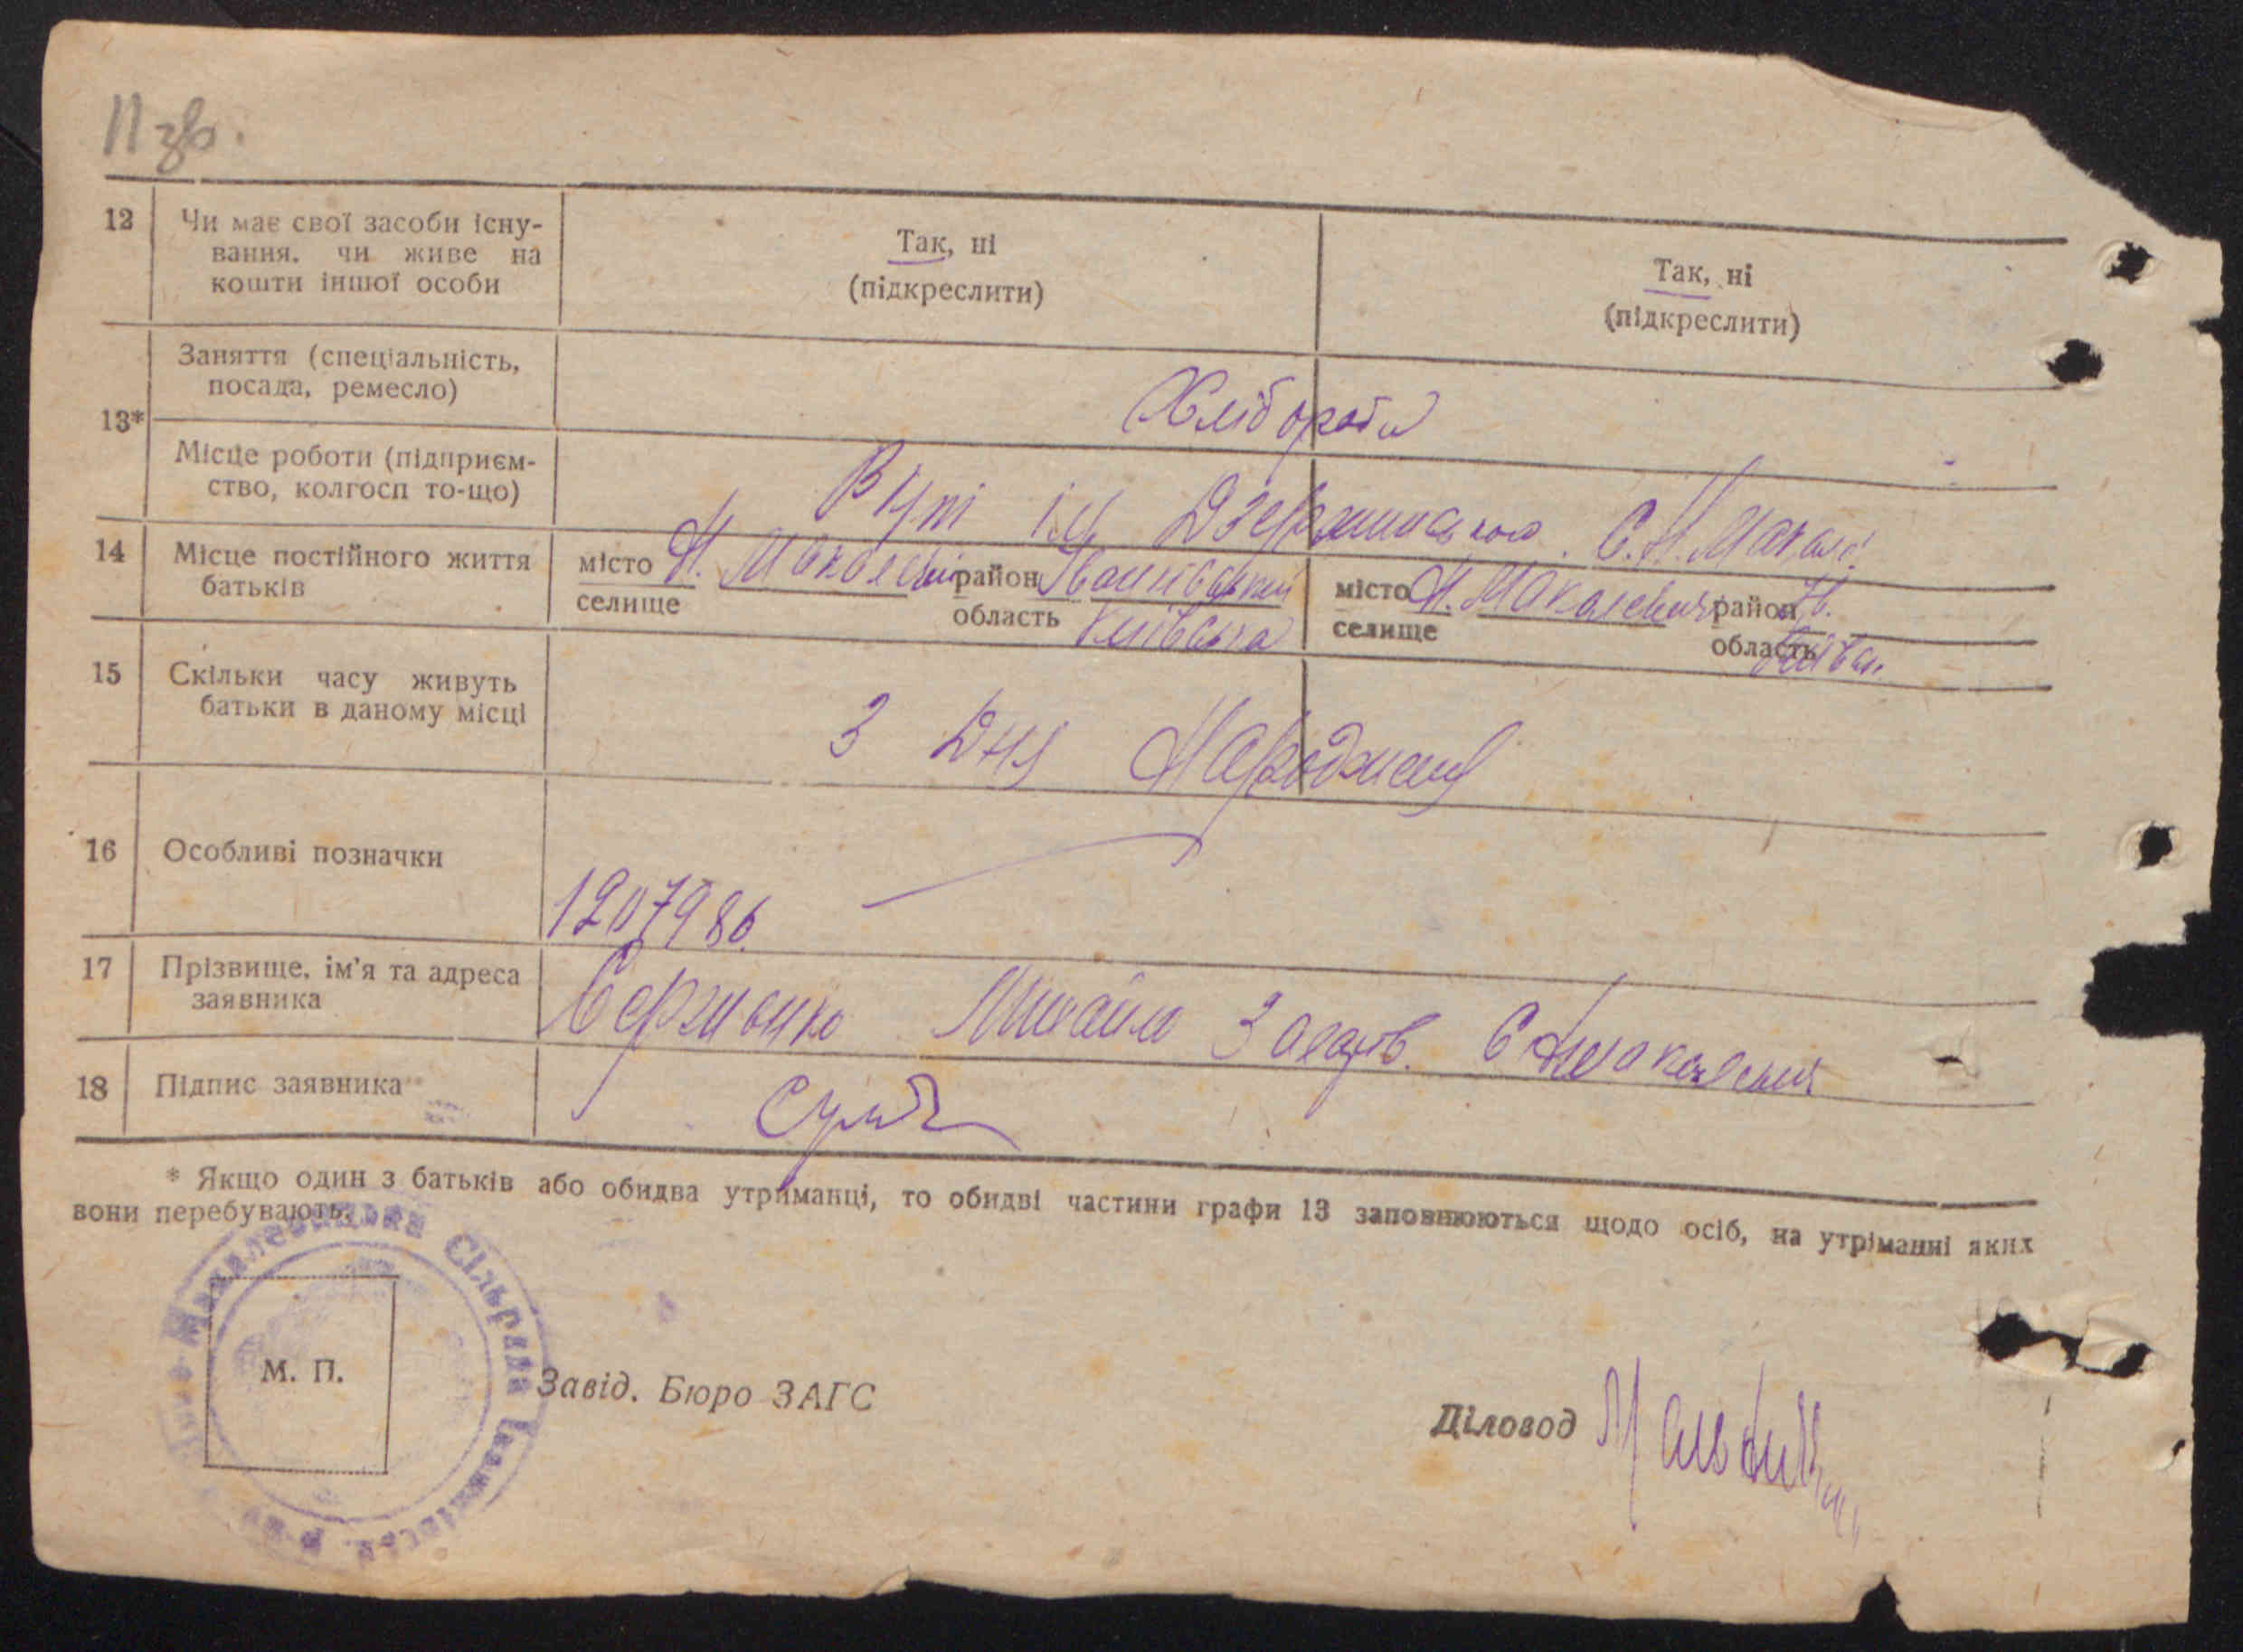 11 зв.
12 Чи має свої засоби існу-
вання, чи живе на
кошти іншої особи
Так, ні
(підкреслити)
Так, ні
(підкреслити)
13*
Заняття (спеціальність,
посада, ремесло)
Хлібороби
Місце роботи (підприєм-
ство, колгосп то-що)
ім Дзержинського С. Н. Макал.
14 Місце постійного життя
батьків
місто Н. Макалевич район Іванківський
селище область Київська
місто Н. Макалевич район Ів.
селище область Київськ.
15 Скільки часу живуть
батьки в даному місці
З дня Народження
16 Особливі позначки
1207986.
17 Прізвище, ім'я та адреса
заявника
Михайло Захаров. С Н Макалевич
18 Підпис заявника
* Якщо один з батьків або обидва утриманці, то обидві частини графи 13 заповнюються щодо осіб, на утріманні яких
вони перебувають.
Макалевицька Сільрада Іванківськ. р-ну
М. П.
Завід. Бюро ЗАГС
Діловод